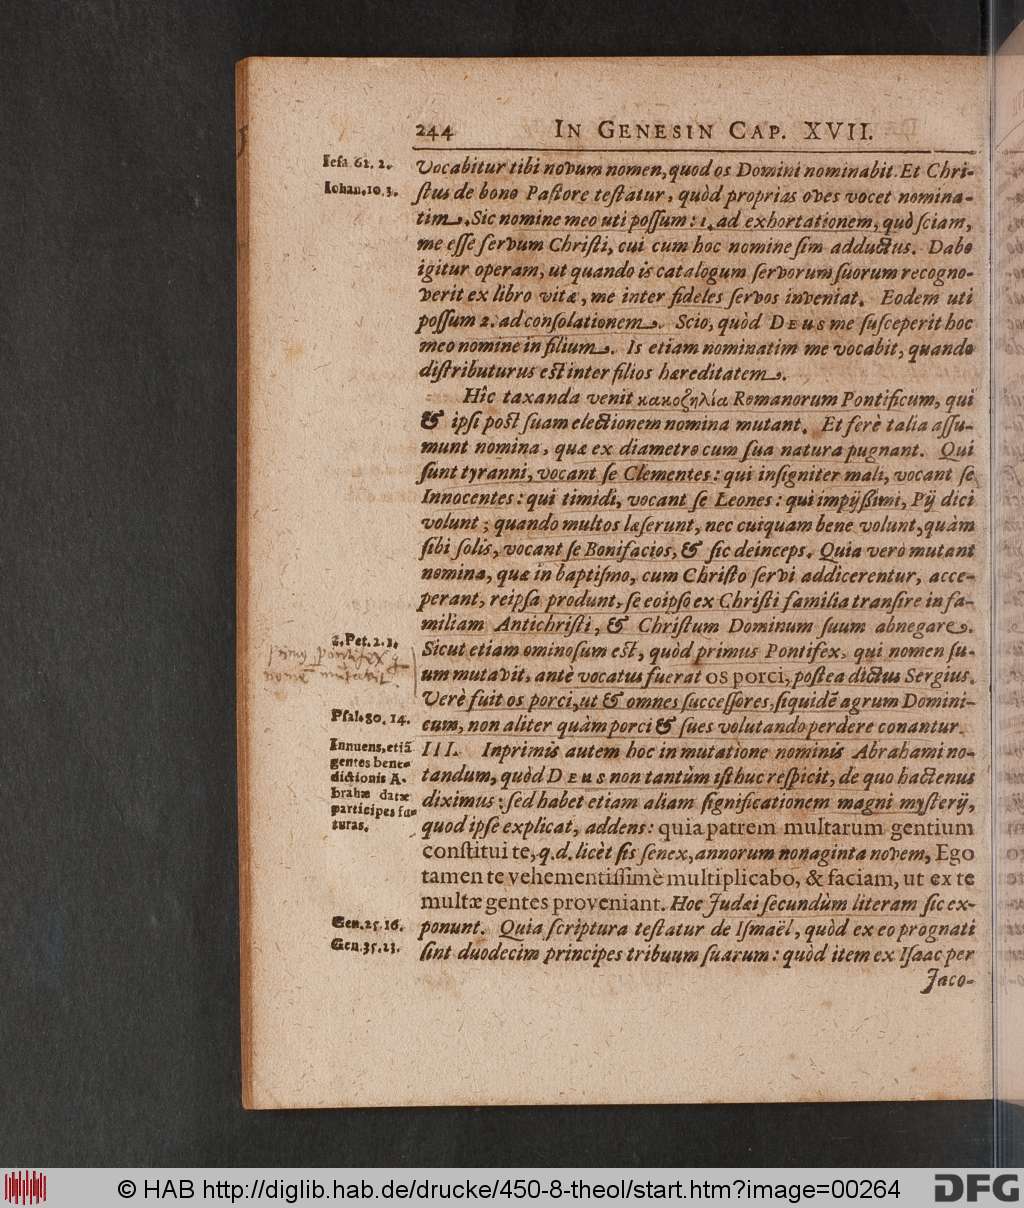 244 IN GENESIN CAP. XVII.
Iesa. 62. 2. Vocabitur tibi novum nomen, quod os Domini nominabit. Et Chri-
Iohan. 10. 3. ſtus de bono Paſtore teſtatur, quòd proprias oves vocet nomina-
tim. Sic nomine meo uti poſſum: 1. ad exhortationem, quò ſciam,
me eſſe ſervum Chriſti, cui cum hoc nomine ſim adductus. Dabo
igitur operam, ut quando is catalogum ſervorum ſuorum recogno-
verit ex libro vitæ, me inter fideles ſervos inveniat. Eodem uti
poſſum 2. ad conſolationem. Scio, quòd DEUS me ſuſceperit hoc
meo nomine in filium. Is etiam nominatim me vocabit, quando
diſtributurus eſt inter filios hæreditatem.
Hîc taxanda venit κακοζηλία Romanorum Pontificum, qui
& ipſi poſt ſuam electionem nomina mutant. Et ferè talia aſſu-
munt nomina, quæ ex diametro cum ſua natura pugnant. Qui
ſunt tyranni, vocant ſe Clementes: qui inſigniter mali, vocant ſe
Innocentes: qui timidi, vocant ſe Leones: qui impijßimi, Pij dici
volunt; quando multos læſerunt, nec cuiquam bene volunt, quàm
ſibi ſolis, vocant ſe Bonifacios, & ſic deinceps. Quia verò mutant
nomina, quæ in baptiſmo, cum Chriſto ſervi addicerentur, acce-
perant, reipſa produnt, ſe eoipſo ex Chriſti familia tranſire in fa-
miliam Antichriſti, & Chriſtum Dominum ſuum abnegare.
2. Pet. 2. 1. Sicut etiam ominoſum eſt, quòd primus Pontifex, qui nomen ſu-
primus pontifex
um mutavit, antè vocatus fuerat os porci, poſtea dictus Sergius.
mutavit
Verè fuit os porci, ut & omnes ſucceſſores, ſiquidẽ agrum Domini-
Pſal. 80. 14. cum, non aliter quàm porci & ſues volutando perdere conantur.
Innuens, etiã III. Inprimis autem hoc in mutatione nominis Abrahami no-
gentes bene-
dictionis A- tandum, quòd DEUS non tantùm iſthuc reſpicit, de quo hactenus
brahæ datæ diximus: ſed habet etiam aliam ſignificationem magni myſterij,
participes fu-
turas. quod ipſe explicat, addens: quia patrem multarum gentium
conſtitui te, q. d. licèt ſis ſenex, annorum nonaginta novem, Ego
tamen te vehementiſſimè multiplicabo, & faciam, ut ex te
multæ gentes proveniant. Hoc Judæi ſecundùm literam ſic ex-
Gen. 25. 16. ponunt. Quia ſcriptura teſtatur de Iſmaël, quòd ex eo prognati
Gen. 35. 23. ſint duodecim principes tribuum ſuarum: quòd item ex Iſaac per
Jaco-
© HAB http://diglib.hab.de/drucke/450-8-theol/start.htm?image=00264
DFG